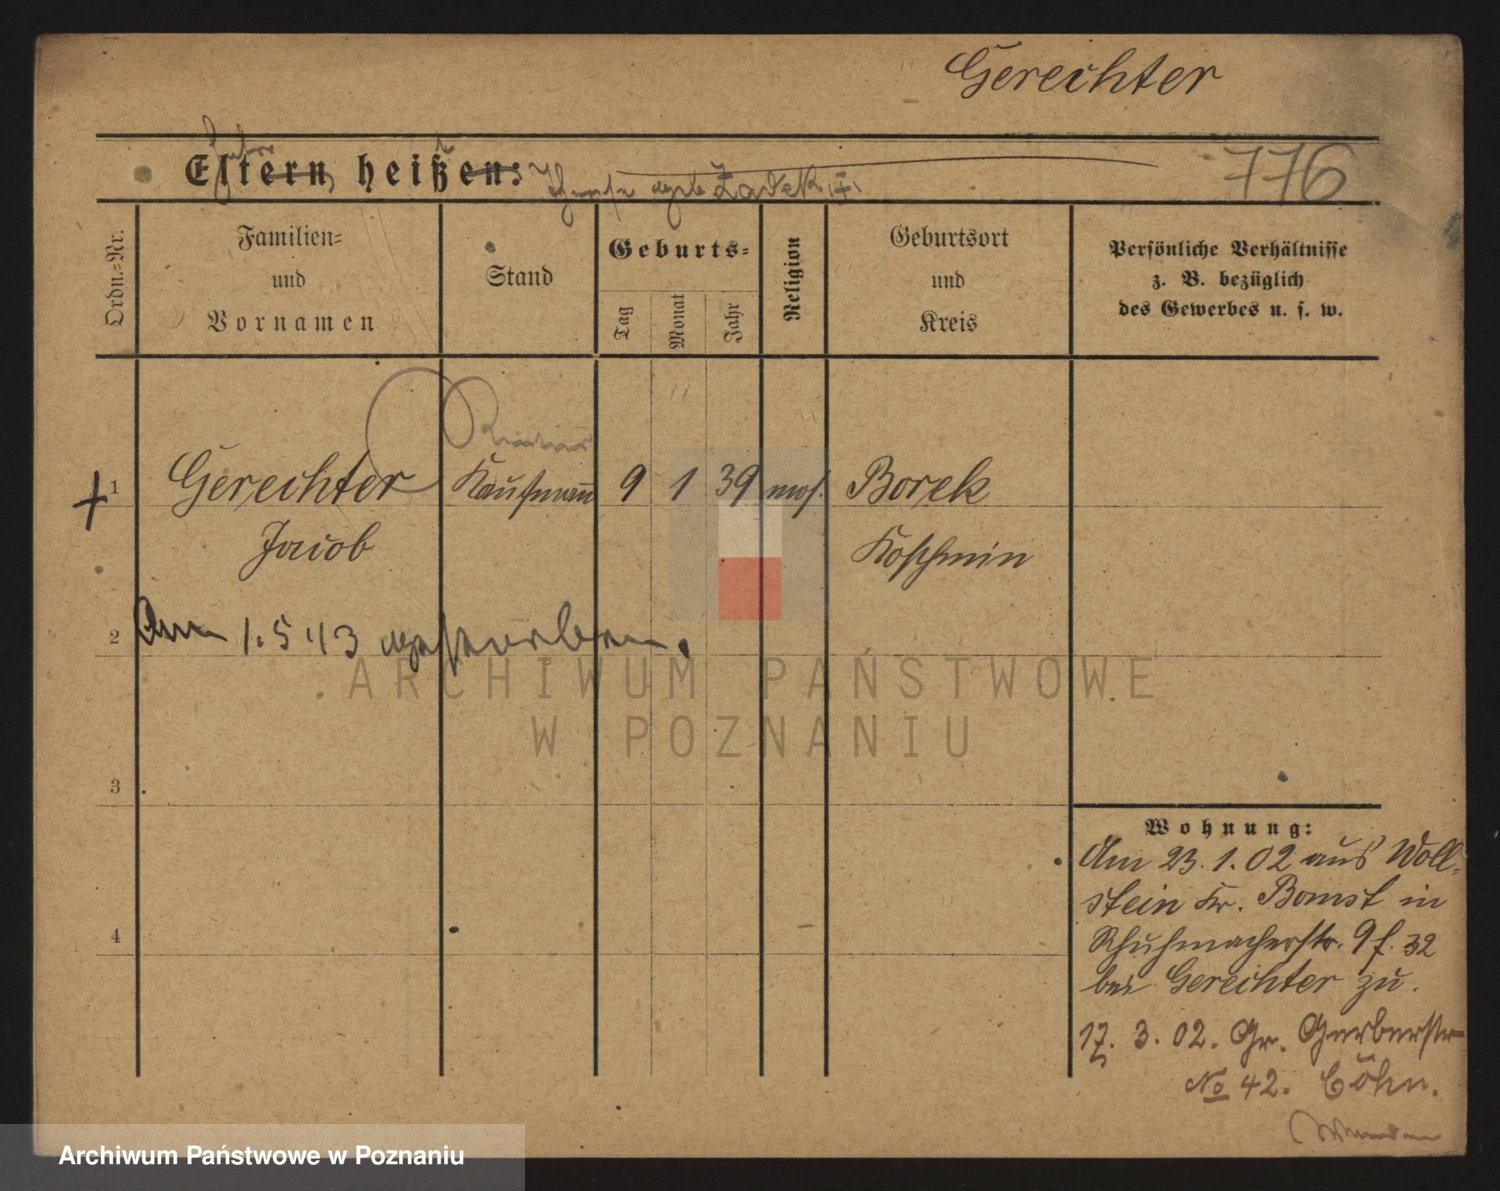 Gerechter
Eltern heißen:
geb. Zadek
776
Ordn.=Nr.
Familien=
und
Vornamen
Stand
Geburts=
Tag
Monat
Jahr
Religion
Geburtsort
und
Kreis
Persönliche Verhältnisse
z. B. bezüglich
des Gewerbes u. s. w.
Rentier
1 Gerechter Kaufmann 9 1 39 mos. Borek
Jacob Koschmin
2 Am 1.5 03 gestorben.
3
4
Wohnung:
Am 23.1.02 aus Woll-
stein Kr. Bomst in
Schuhmacherstr. 9 f. 32
bei Gerechter zu.
17. 3. 02. Gr. Gerberstr
No 42. Cöhn.
ARCHIWUM PAŃSTWOWE
W POZNANIU
Archiwum Państwowe w Poznaniu